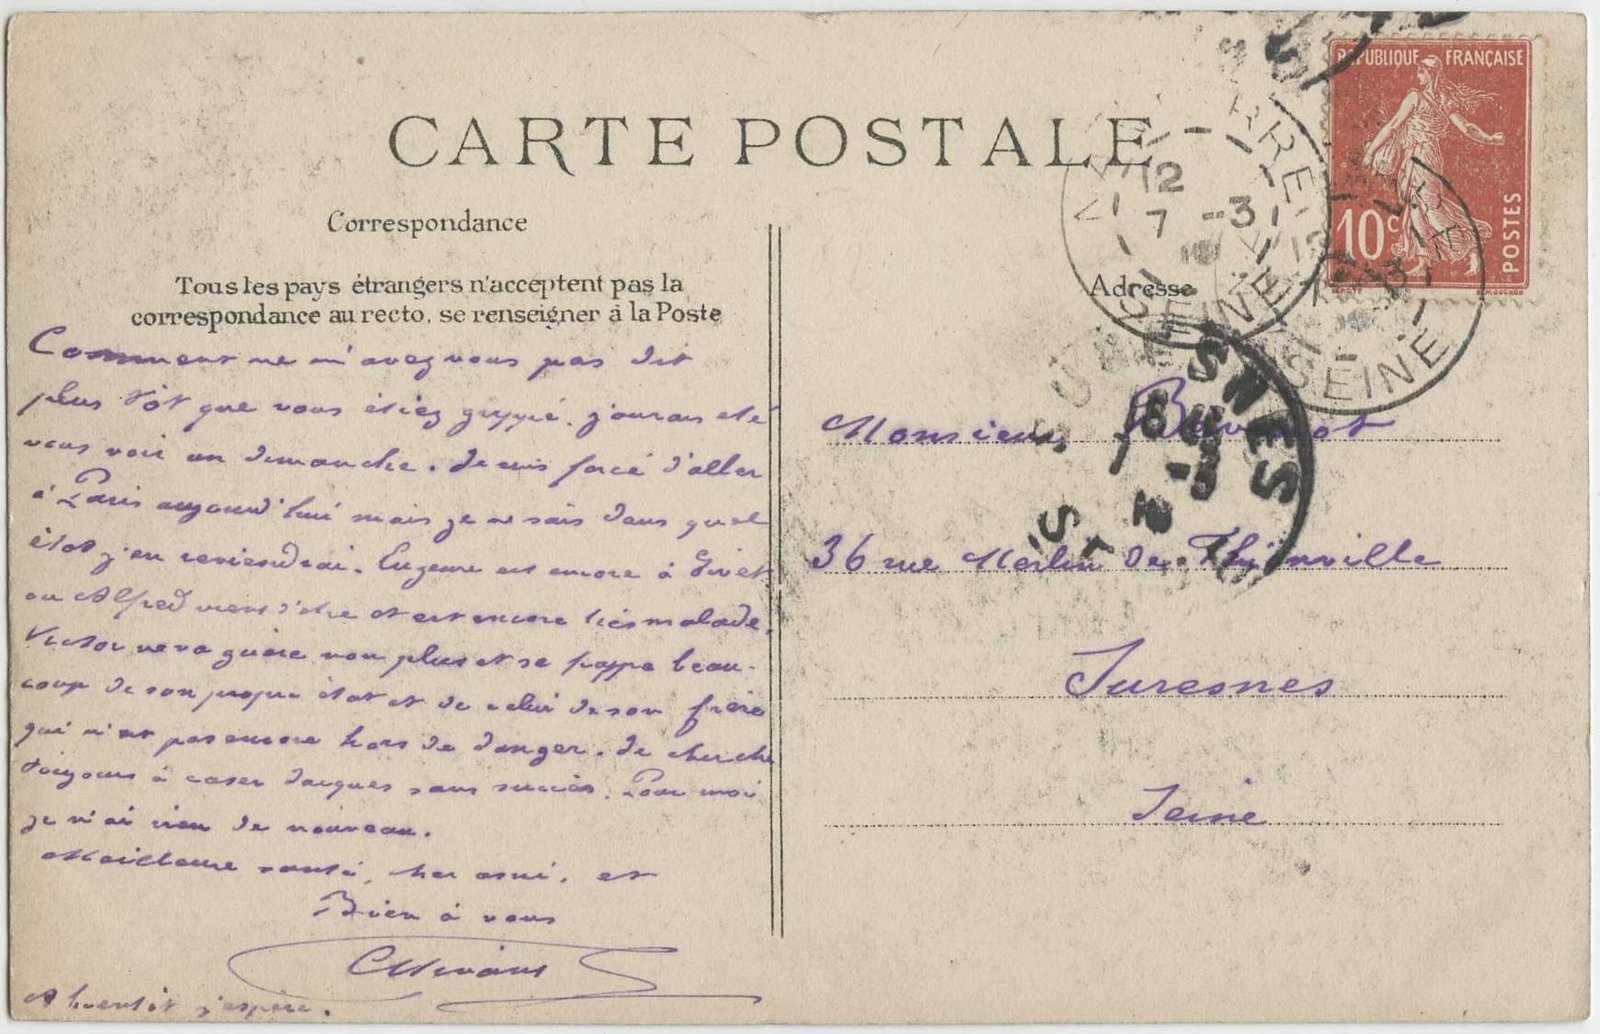 CARTE POSTALE
Correspondance
Tous les pays étrangers n'acceptent pas la
correspondance au recto, se renseigner à la Poste
Comment ne m'avez vous pas dit
plus tôt que vous étiez grippé. j'aurais été
vous voir un dimanche. Je suis forcé d'aller
à Paris aujourd'hui mais je ne sais dans quel
état j'en reviendrai. Eugene est encore à Givet
ou Alfred vient d'être et est encore très malade.
Victor ne va guère non plus et se frappe beau-
coup de son propre état et de celui de son frère
qui n'est pas encore hors de danger. Je cherche
toujours à caser Jacques sans succès. Pour moi
je n'ai rien de nouveau.
Meilleure santé, cher ami, et
Bien à vous
A bientôt j'espère.
Adresse
Monsieur
36 rue Merlin de Thionville
Suresnes
Seine
RÉPUBLIQUE FRANÇAISE
10c
POSTES
12
7 -3
SEINE
SEINE
SURESNES